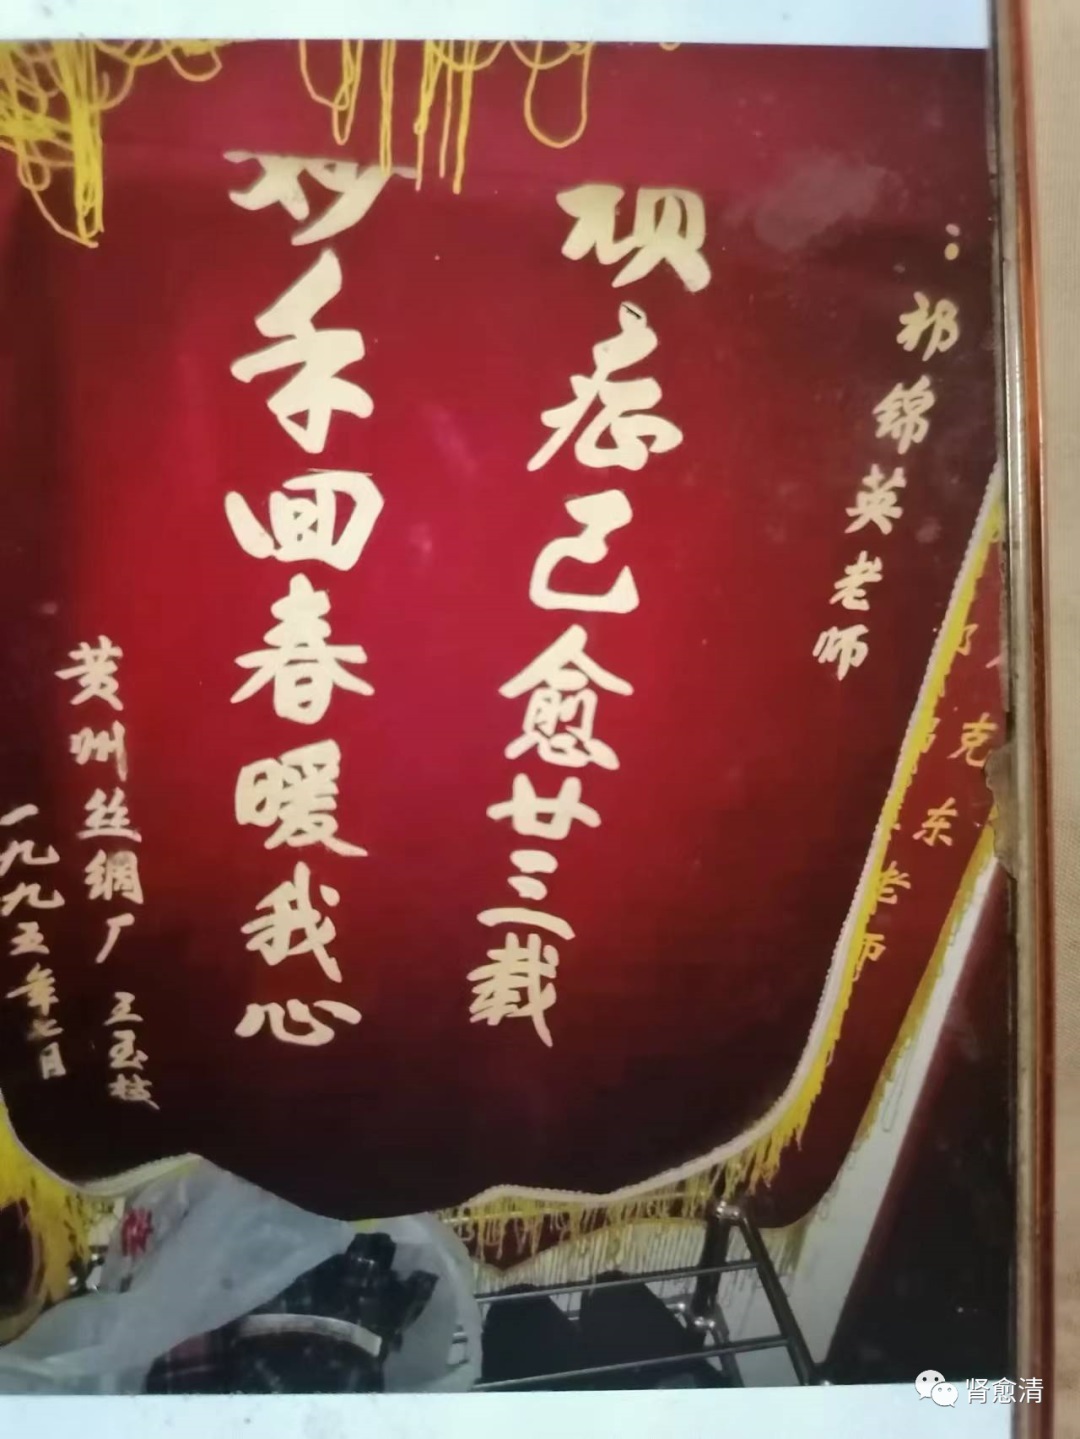 ：祁锦英老师
顽症已愈廿三载
妙手回春暖我心
黄州丝绸厂 王玉枝
一九九五年七月
克东
老师
肾愈清